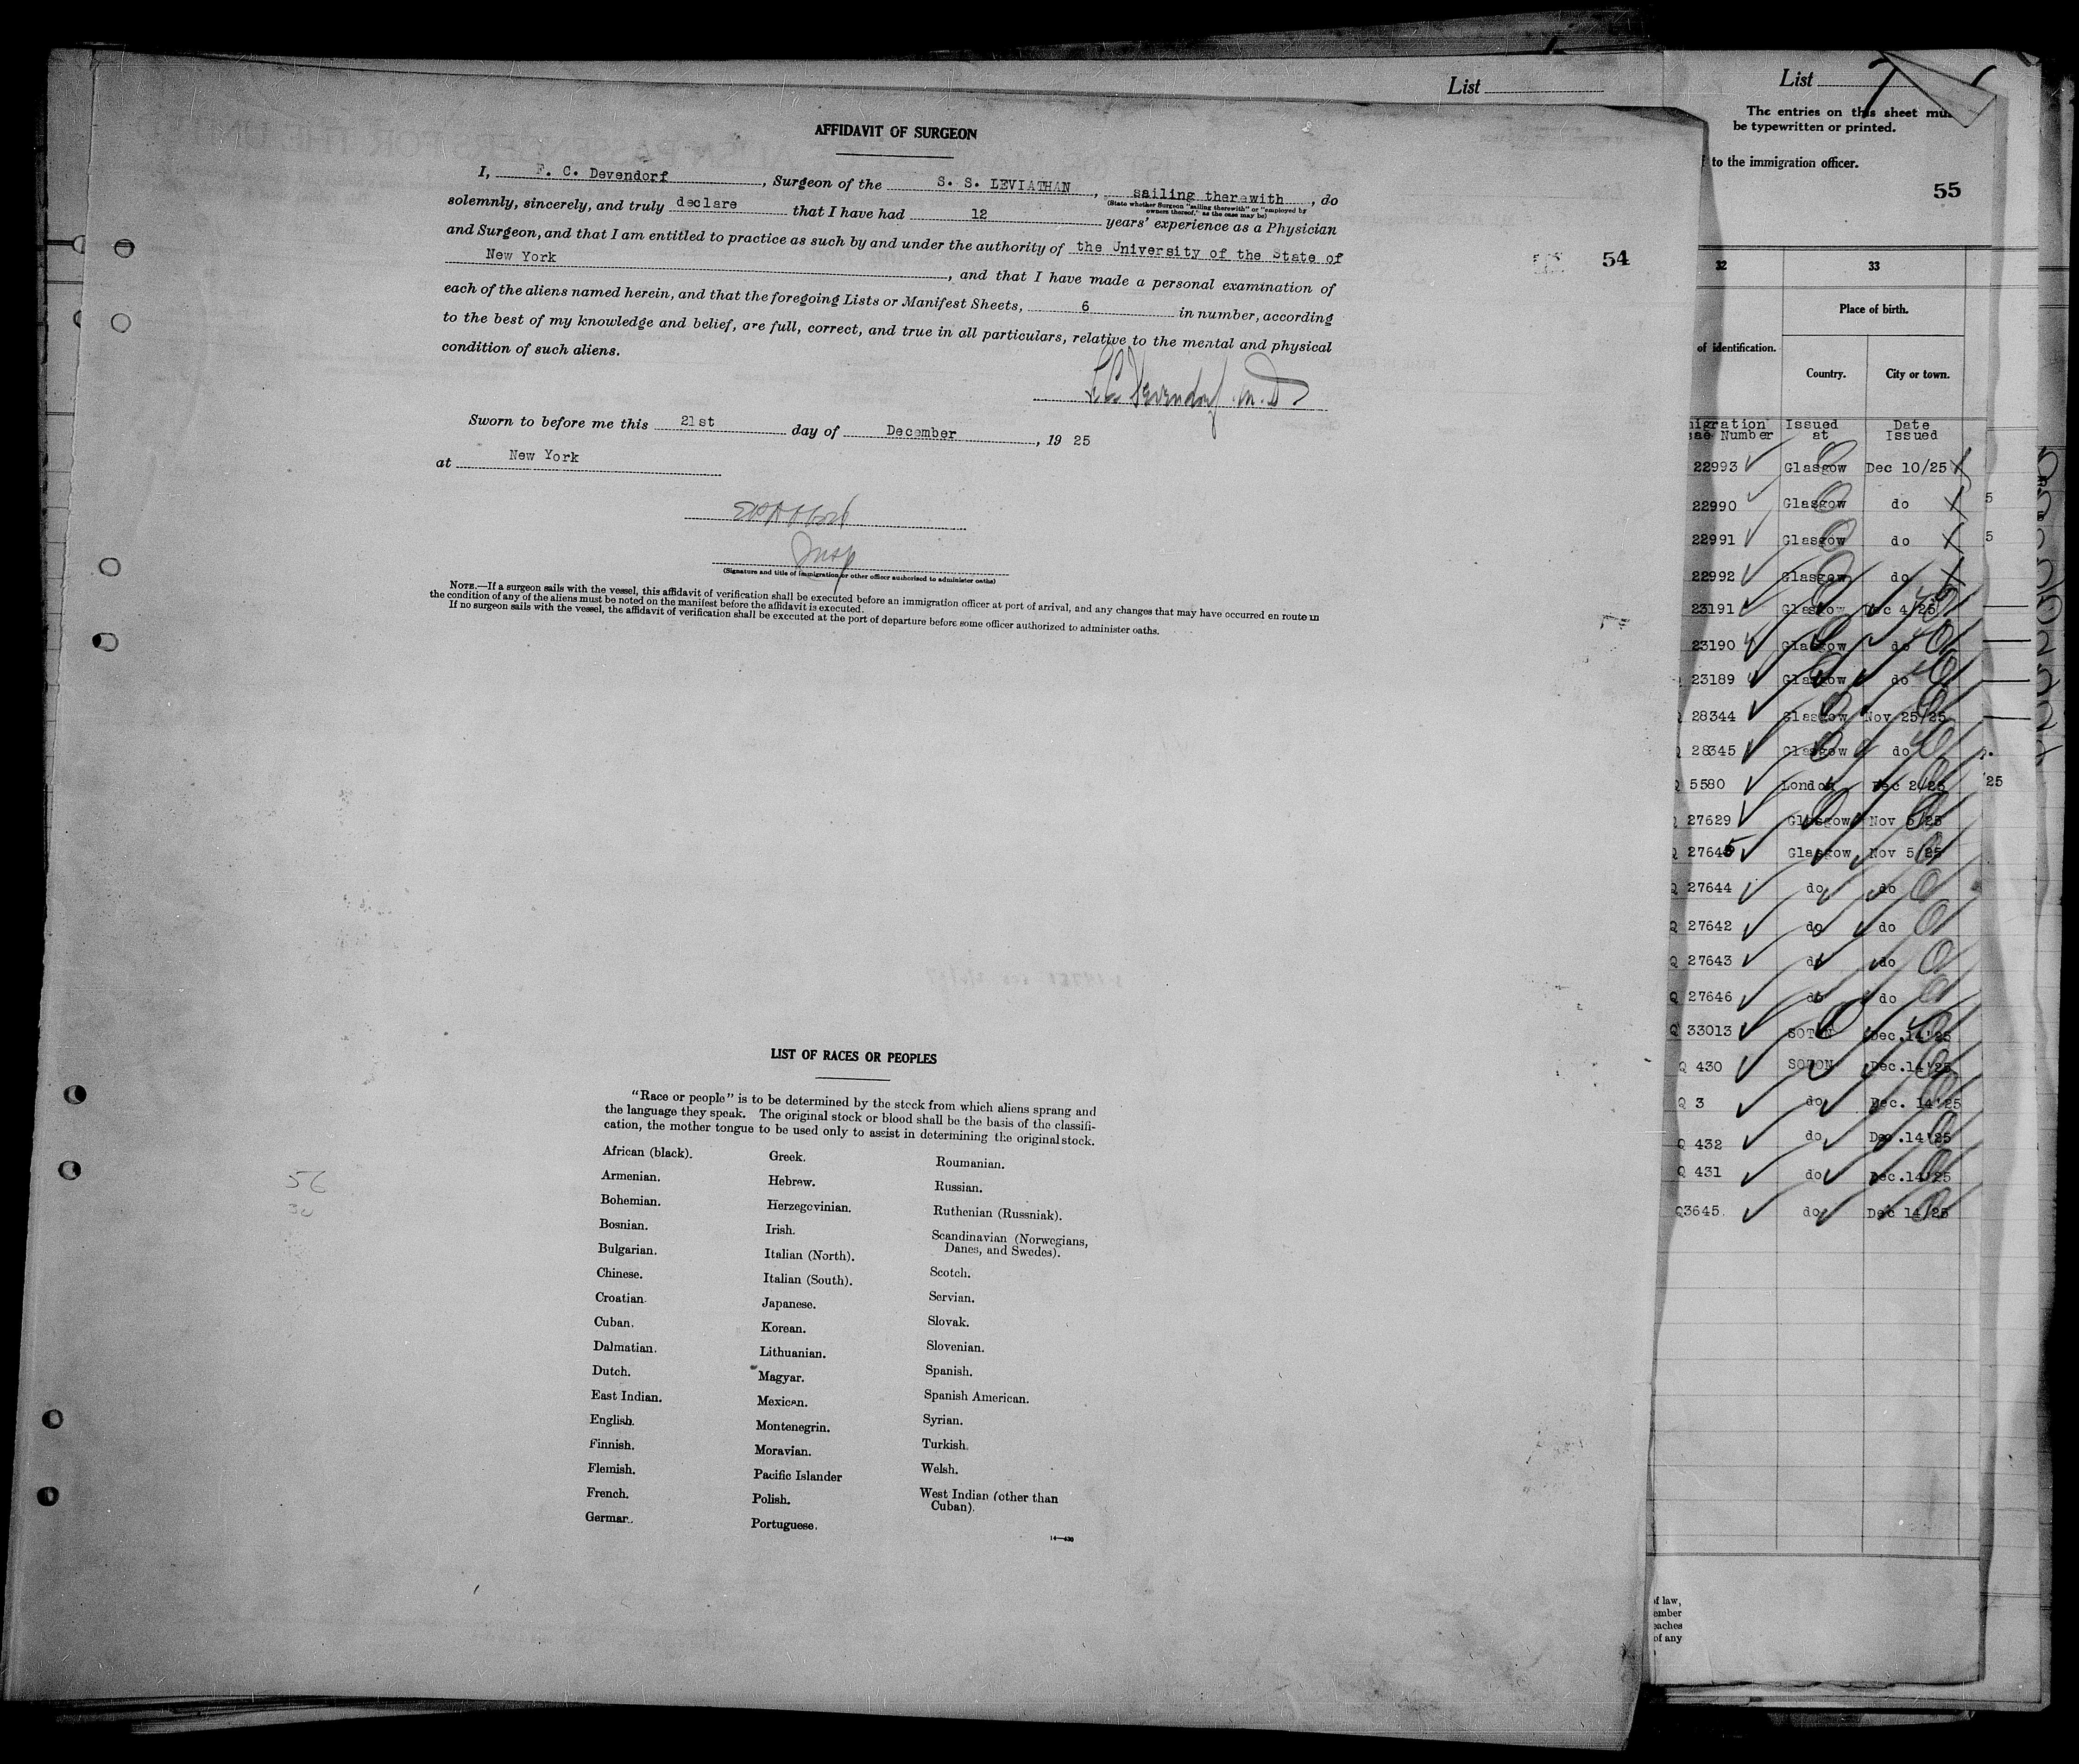 List
AFFIDAVIT OF SURGEON
I, F. C. Devendorf, Surgeon of the S. S. LEVIATHAN, sailing therewith, do
(State whether Surgeon "sailing therewith" or "employed by
owners thereof," as the case may be)
solemnly, sincerely, and truly declare that I have had 12 years' experience as a Physician
and Surgeon, and that I am entitled to practice as such by and under the authority of the University of the State of
New York, and that I have made a personal examination of
each of the aliens named herein, and that the foregoing Lists or Manifest Sheets, 6 in number, according
to the best of my knowledge and belief, are full, correct, and true in all particulars, relative to the mental and physical
condition of such aliens.
F C Devendorf M.D
Sworn to before me this 21st day of December, 19 25
at New York
Insp
(Signature and title of immigration or other officer authorized to administer oaths)
NOTE.—If a surgeon sails with the vessel, this affidavit of verification shall be executed before an immigration officer at port of arrival, and any changes that may have occurred en route in
the condition of any of the aliens must be noted on the manifest before the affidavit is executed.
If no surgeon sails with the vessel, the affidavit of verification shall be executed at the port of departure before some officer authorized to administer oaths.
54
56
LIST OF RACES OR PEOPLES
"Race or people" is to be determined by the stock from which aliens sprang and
the language they speak. The original stock or blood shall be the basis of the classifi-
cation, the mother tongue to be used only to assist in determining the original stock.
African (black).
Armenian.
Bohemian.
Bosnian.
Bulgarian.
Chinese.
Croatian.
Cuban.
Dalmatian.
Dutch.
East Indian.
English.
Finnish.
Flemish.
French.
German.
Greek.
Hebrew.
Herzegovinian.
Irish.
Italian (North).
Italian (South).
Japanese.
Korean.
Lithuanian.
Magyar.
Mexican.
Montenegrin.
Moravian.
Pacific Islander
Polish.
Portuguese.
Roumanian.
Russian.
Ruthenian (Russniak).
Scandinavian (Norwegians,
Danes, and Swedes).
Scotch.
Servian.
Slovak.
Slovenian.
Spanish.
Spanish American.
Syrian.
Turkish.
Welsh.
West Indian (other than
Cuban).
14—430
List 7
The entries on this sheet mus
be typewritten or printed.
to the immigration officer.
55
32 33
Place of birth.
of identification.
Country. City or town.
migration Issued Date
Number at Issued
22993 Glasgow Dec 10/25
22990 Glasgow do 5
22991 Glasgow do 5
22992 Glasgow do
23191 Glasgow Dec 4/25
23190 Glasgow do
23189 Glasgow do
28344 Glasgow Nov 25/25
28345 Glasgow do
Q 5580 London Dec 2/25 '25
27629 Glasgow Nov 5/25
Q 27645 Glasgow Nov 5/25
Q 27644 do do
Q 27642 do do
Q 27643 do do
Q 27646 do do
Q 33013 SOTON Dec.14'25
Q 430 SOTON Dec.14'25
Q 3 do Dec. 14'25
Q 432 do Dec.14'25
Q 431 do Dec.14'25
Q3645 do Dec 14/25
of law,
ember
eaches
of any